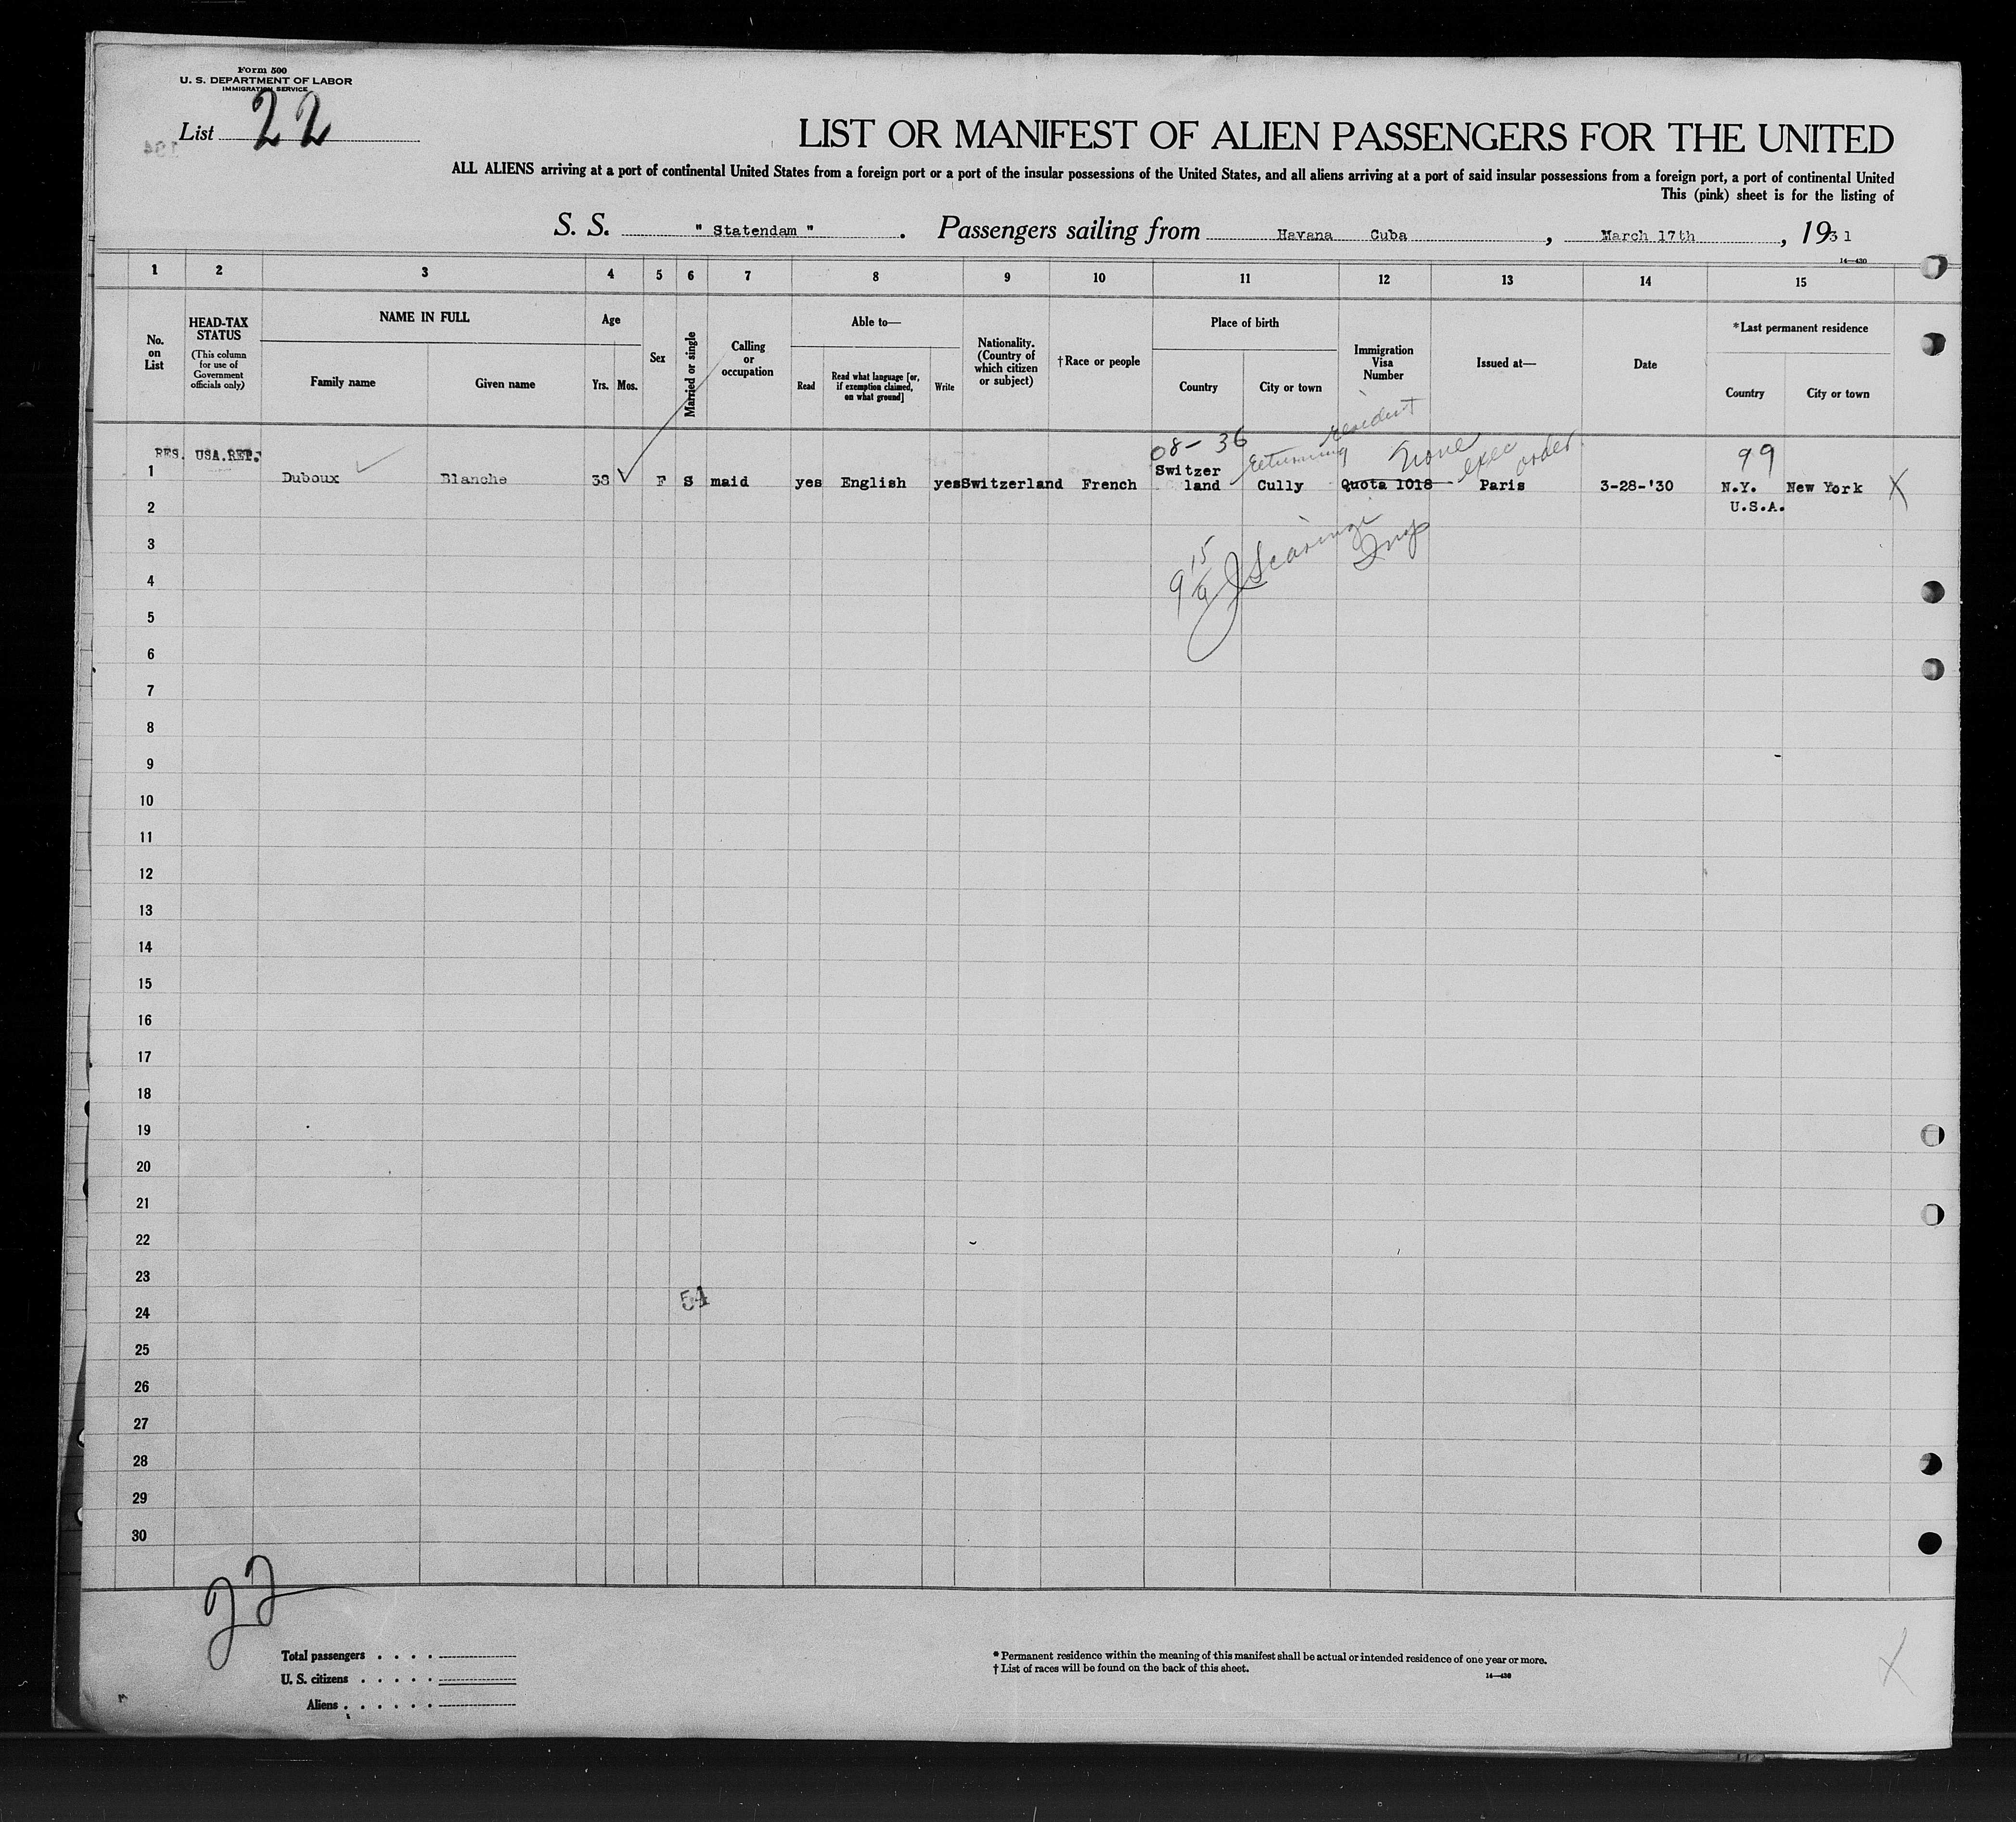 Form 500
U. S. DEPARTMENT OF LABOR
IMMIGRATION SERVICE
List 22
LIST OR MANIFEST OF ALIEN PASSENGERS FOR THE UNITED
ALL ALIENS arriving at a port of continental United States from a foreign port or a port of the insular possessions of the United States, and all aliens arriving at a port of said insular possessions from a foreign port, a port of continental United
This (pink) sheet is for the listing of
S. S. " Statendam " . Passengers sailing from Havana Cuba , March 17th , 1931
14—430
1 2 3 4 5 6 7 8 9 10 11 12 13 14 15
No. on List
HEAD-TAX STATUS
(This column for use of Government officials only)
NAME IN FULL
Family name Given name
Age
Yrs. Mos.
Sex
Married or single
Calling or occupation
Able to—
Read
Read what language [or, if exemption claimed, on what ground]
Write
Nationality. (Country of which citizen or subject)
† Race or people
Place of birth
Country City or town
Immigration Visa Number
Issued at—
Date
* Last permanent residence
Country City or town
08- 36 Returning resident None exec order 99
1 RES. USA.RET. Duboux Blanche 38 F S maid yes English yes Switzerland French Switzer land Cully Quota 1018 Paris 3-28-'30 N.Y. New York X
2 U.S.A.
3
4
5
6
7
8
9
10
11
12
13
14
15
16
17
18
19
20
21
22
23
54
24
25
26
27
28
29
30
22
Total passengers . . . .
U. S. citizens . . . . .
Aliens . . . . . .
* Permanent residence within the meaning of this manifest shall be actual or intended residence of one year or more.
† List of races will be found on the back of this sheet.
14—430
X